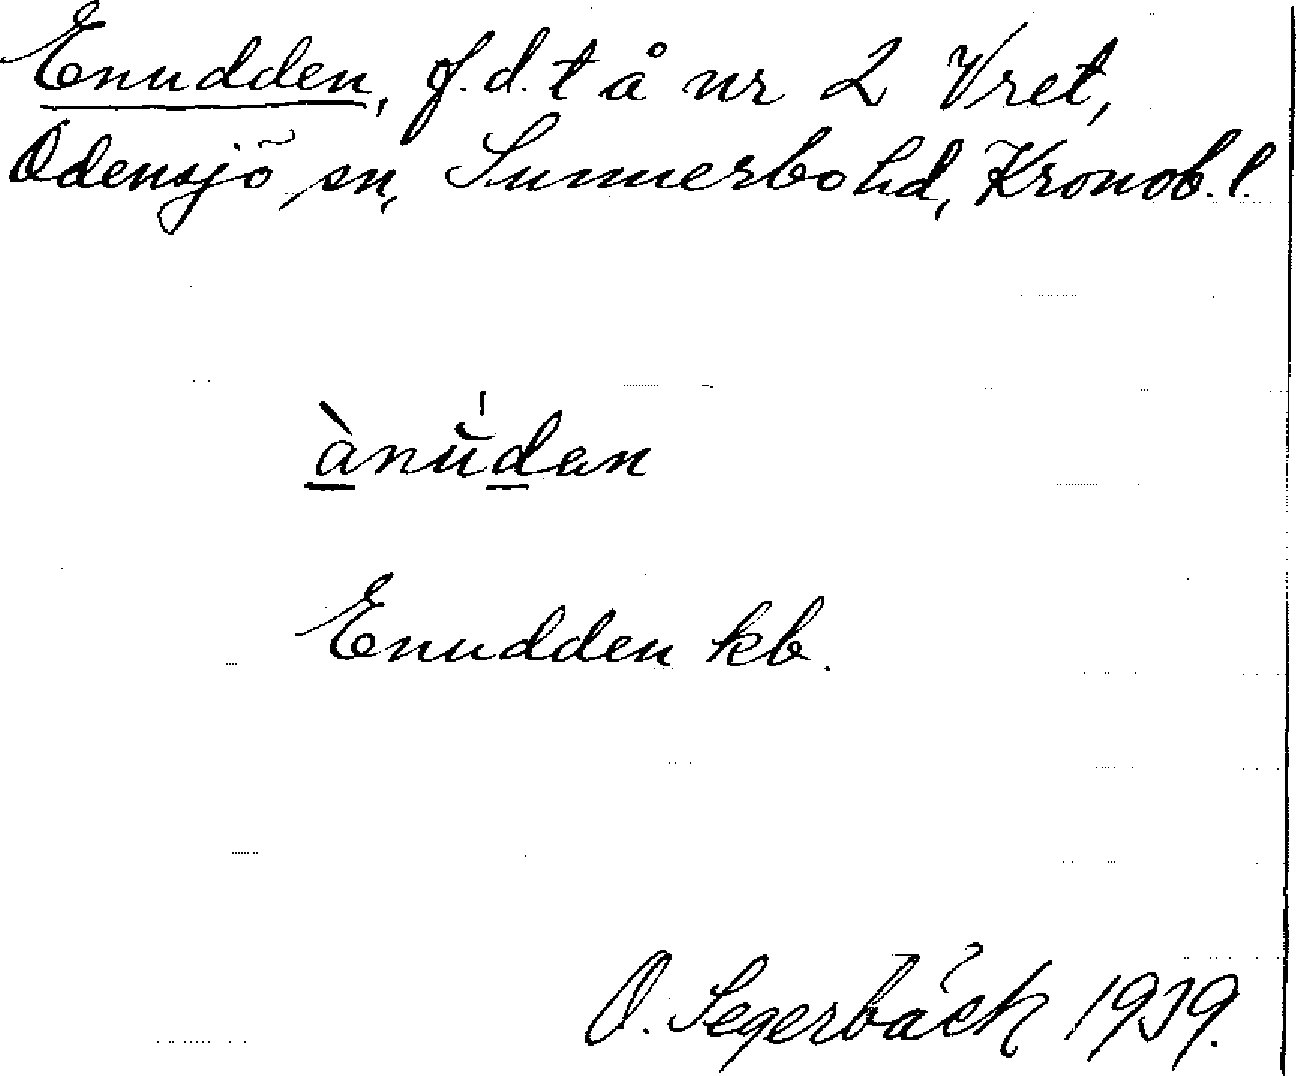 Enudden, f.d. t å nr 2 Vret,
Odensjö sn, Sunnerbo hd, Kronob. l.
ànŭ́dan
Enudden kb.
O. Segerbäck 1939.